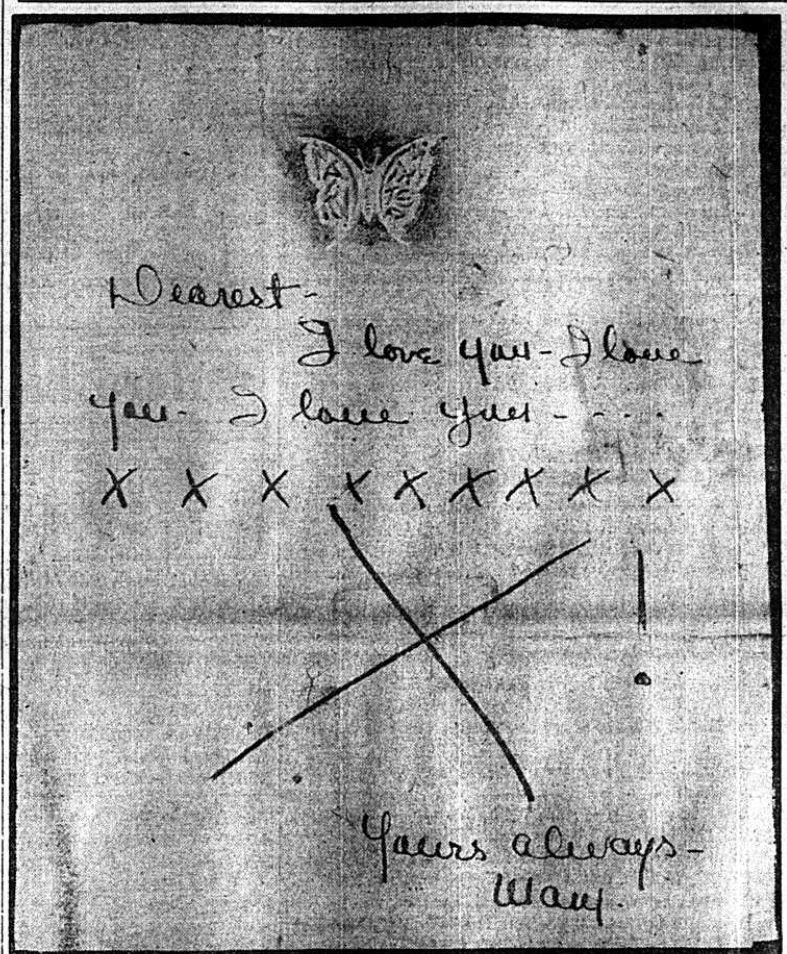 Dearest-
I love you - I love
you - I love you - - - -
X X X X X X X X X
X !
Yours always -
Mary.